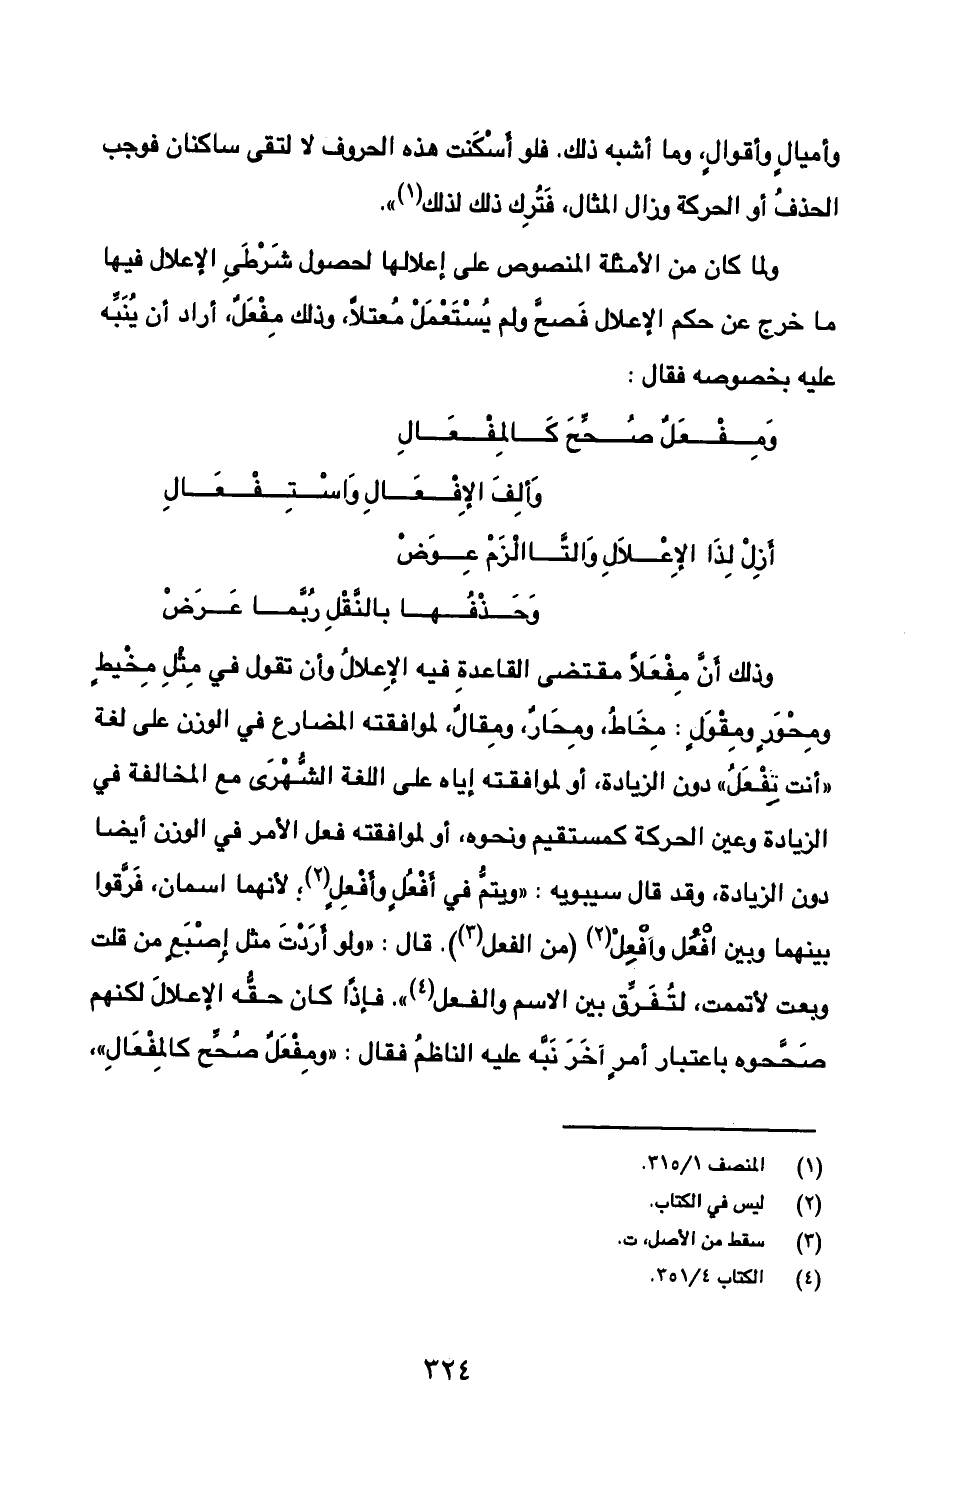 وأميالٍ وأقوالٍ، وما أشبه ذلك. فلو أَسْكَنت هذه الحروف لا لتقى ساكنان فوجب
الحذفُ أو الحركة وزال المثال، فَتُرِك ذلك لذلك(١)».
ولما كان من الأمثلة المنصوص على إعلالها لحصول شَرْطَيِ الإعلال فيها
ما خرج عن حكم الإعلال فَصحَّ ولم يُسْتَعْمَلْ مُعتلاًّ، وذلك مِفْعَلٌ، أراد أن يُنَبِّه
عليه بخصوصه فقال :
وَمِـفْـعَلٌ صُـحِّحَ كَـالمِفْـعَـالِ
وَألِفَ الإِفْـعَـالِ وَاسْـتِـفْـعَـالِ
أَزِلْ لِذَا الإِعْـلاَلِ وَالتَّـا الْزَمْ عِـوَضْ
وَحَـذْفُـهـا بالنَّقْلِ رُبَّمـا عَـرَضْ
وذلك أَنَّ مِفْعَلاً مقتضى القاعدةِ فيه الإعلالُ وأن تقول في مِثْلِ مِخْيطٍ
ومِحْوَرٍ ومِقْوَلٍ : مِخَاطٌ، ومِحَارٌ، ومِقالٌ، لموافقته المضارع في الوزن على لغة
«أنت تِفْعَلُ» دون الزيادة، أو لموافقته إياه على اللغة الشُّهْرَى مع المخالفة في
الزيادة وعين الحركة كمستقيم ونحوه، أو لموافقته فعل الأمر في الوزن أيضا
دون الزيادة، وقد قال سيبويه : «ويتمُّ في أَفْعُلٍ وأَفْعِلٍ(٢)؛ لأنهما اسمان، فَرَّقوا
بينهما وبين افْعُل وافْعِلْ(٢) (من الفعل(٣)). قال : «ولو أَرَدْتَ مثل إِصْبَعٍ من قلت
وبعت لأتممت، لتُفَرِّق بين الاسم والفعل(٤)». فإذًا كان حقُّه الإعلالَ لكنهم
صَحَّحوه باعتبار أمرٍ آخَرَ نَبَّه عليه الناظمُ فقال : «ومِفْعَلٌ صُحِّح كالمِفْعَالِ»،
(١) المنصف ٣١٥/١.
(٢) ليس في الكتاب.
(٣) سقط من الأصل، ت.
(٤) الكتاب ٣٥١/٤.
٣٢٤